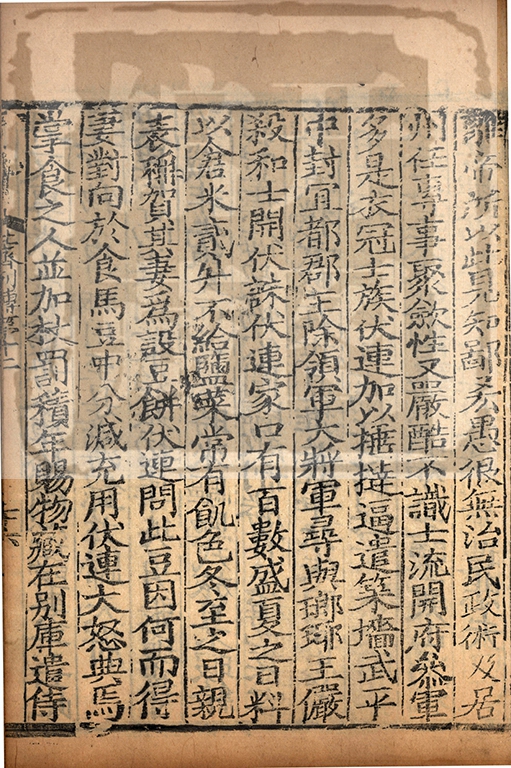 帝所以此見知鄙吝愚很無治民政術及居
州任專事聚斂性又嚴酷不識士流開府參軍
多是衣冠士族伏連加以捶撻逼遣築墻武平
中封宜都郡王除領軍大將軍尋與瑯琊王儼
殺和士開伏誅伏連家口有百數盛夏之日料
以倉米貳升不給鹽菜常有飢色冬至之日親
表稱賀其妻爲設豆餅伏連問此豆因何而得
妻對向於食馬豆中分減充用伏連大怒典馬
掌食之人並加杖罰積年賜物藏在別庫遣侍